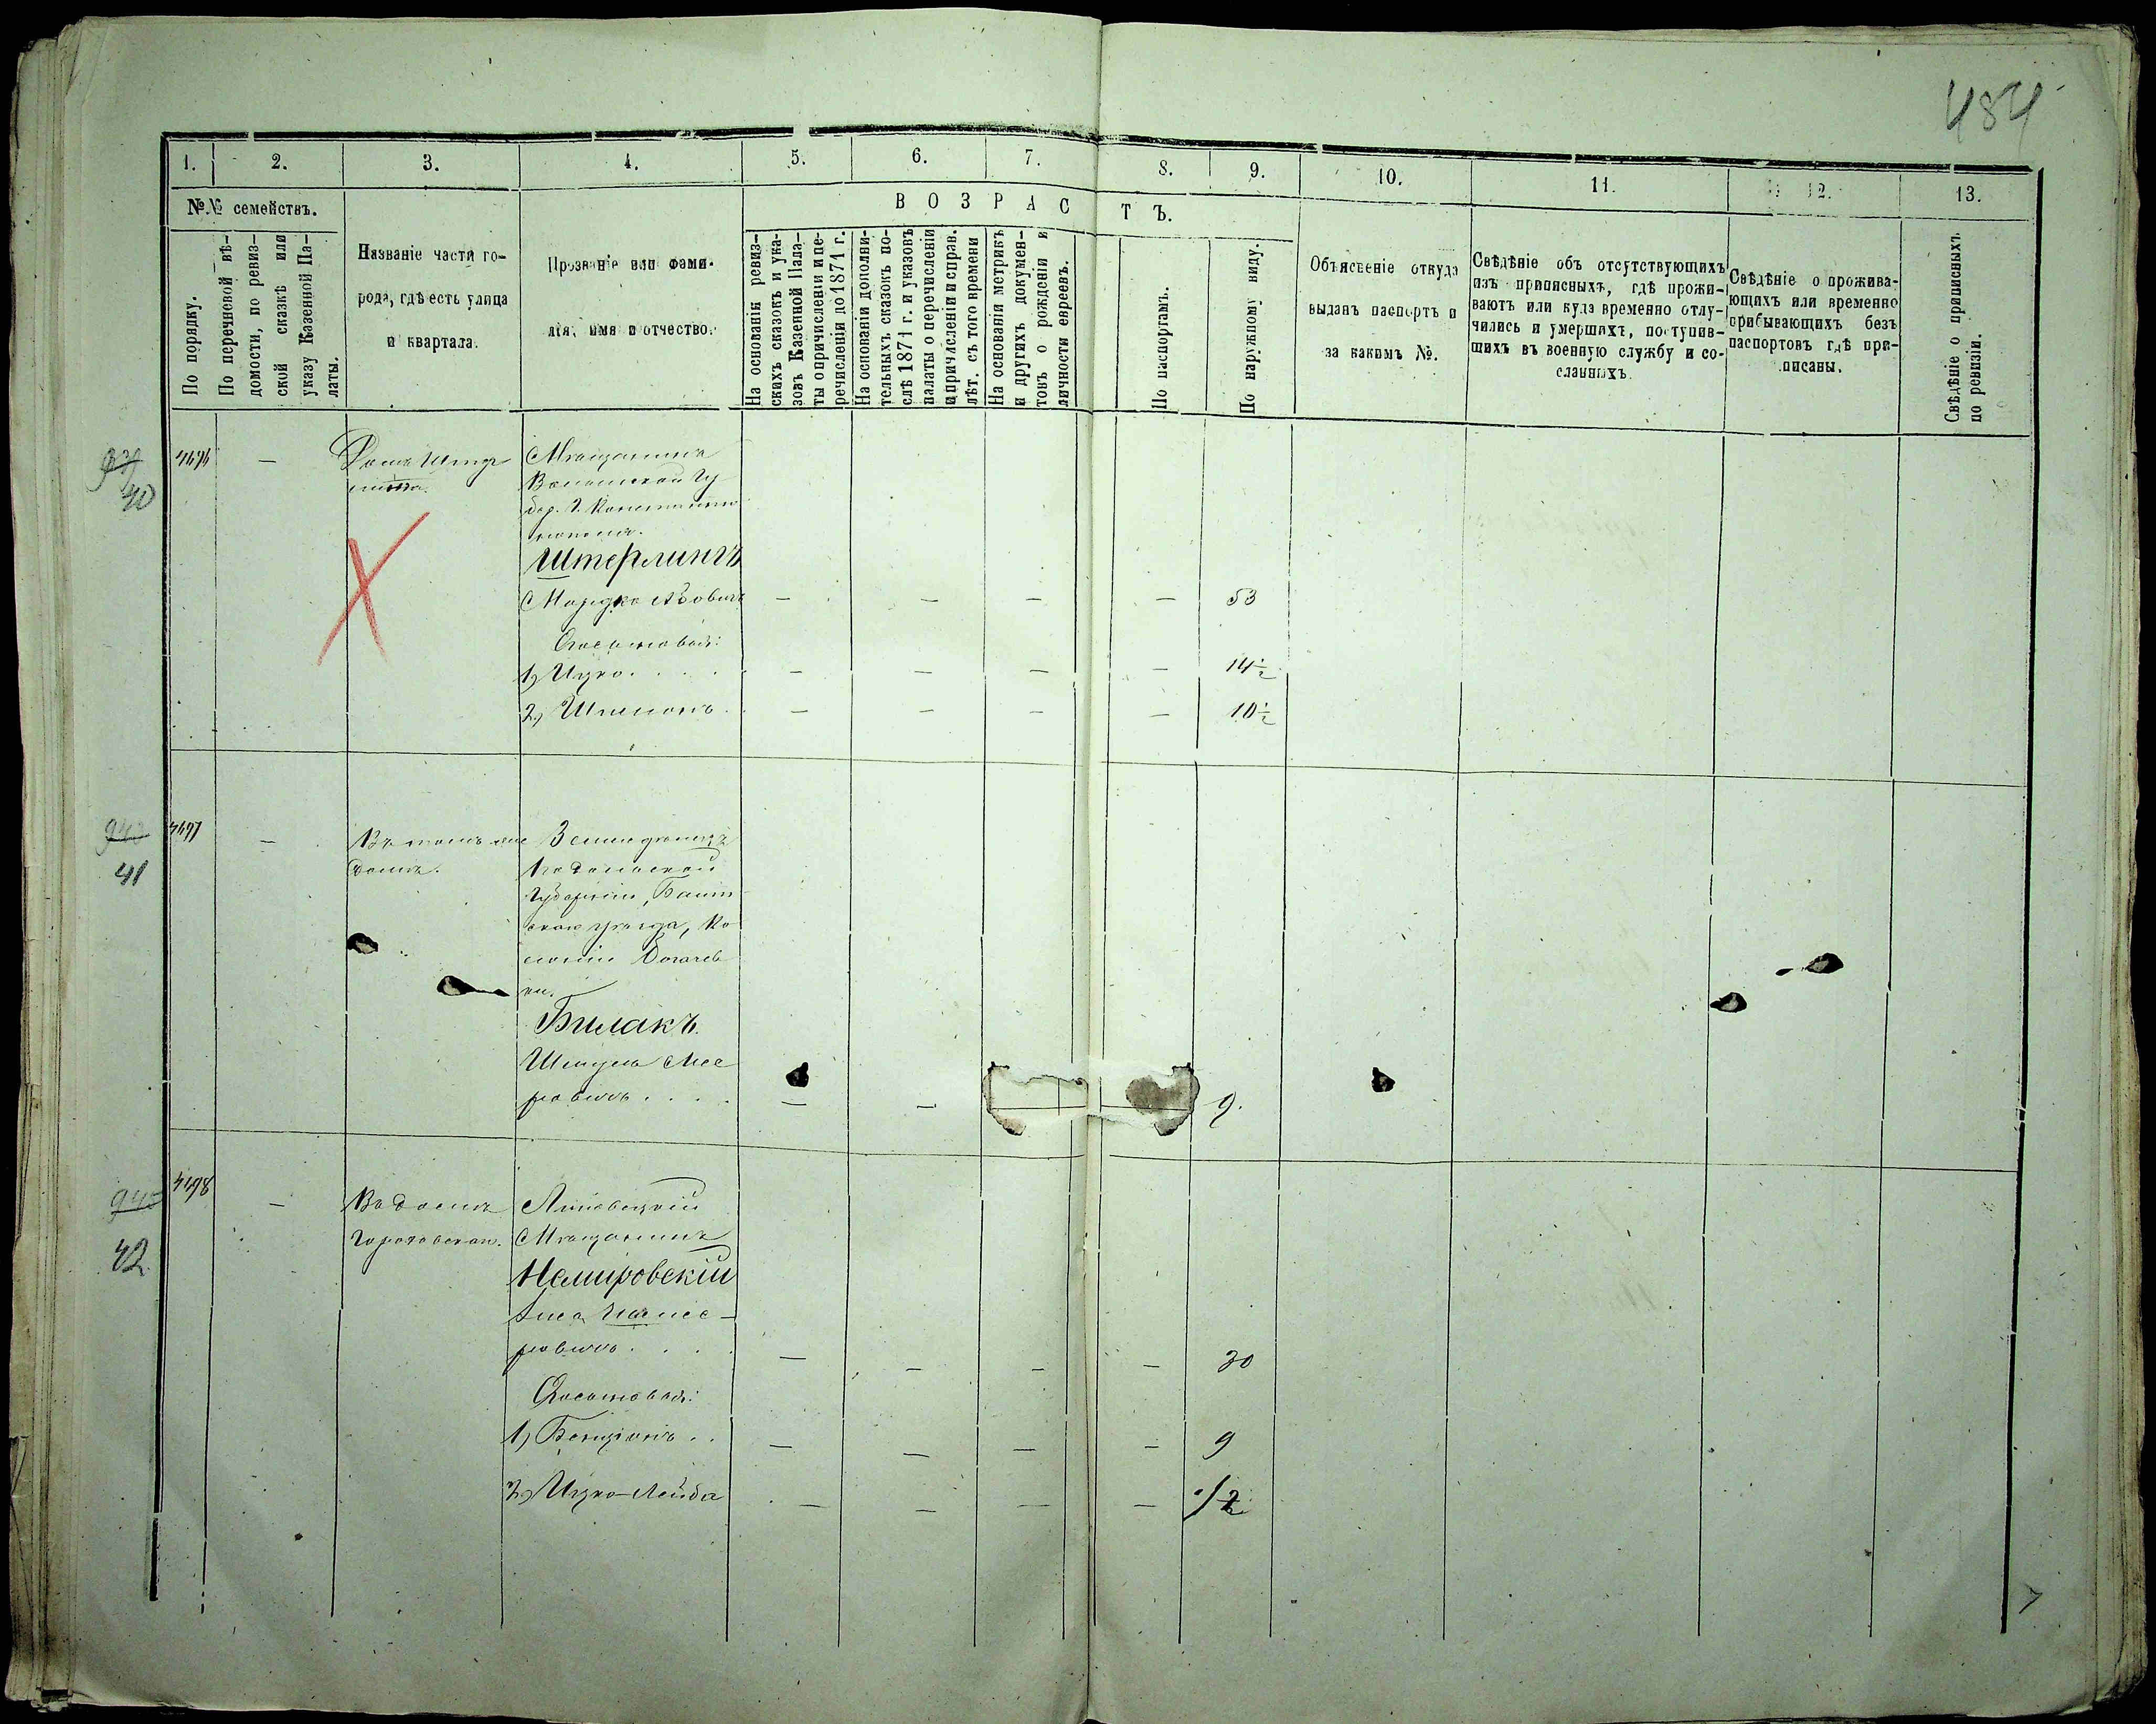 484
1.
2.
3.
4.
5.
6.
7.
8.
9.
10.
11.
12.
13.
№.№ семействъ.
По порядку.
По перечневой вѣ-
домости, по ревиз-
ской сказкѣ или
указу Казенной Па-
латы.
Названіе части го-
рода, гдѣ есть улица
и квартала.
Прозваніе или фами-
лія, имя и отчество.
ВОЗРАСТЪ.
На основаніи ревиз-
скихъ сказокъ и ука-
зовъ Казенной Пала-
ты о причисленіи и пе-
речисленіи до 1871 г.
На основаніи дополни-
тельныхъ сказокъ по-
слѣ 1871 г. и указовъ
палаты о перечисленіи
и причисленіи и справ.
лѣт. съ того времени
На основаніи метрикъ
и другихъ докумен-
товъ о рожденіи и
личности евреевъ.
По паспортамъ.
По наружному виду.
Объясненіе откуда
выданъ паспортъ и
за какимъ №.
Свѣдѣніе объ отсутствующихъ
изъ приписныхъ, гдѣ прожи-
ваютъ или куда временно отлу-
чились и умершихъ, поступив-
шихъ въ военную службу и со-
сланныхъ.
Свѣдѣніе о прожива-
ющихъ или временно
прибывающихъ безъ
паспортовъ гдѣ при-
писаны.
Свѣдѣніе о приписныхъ
по ревизіи.
40
4496
—
Домъ
Мѣщанинъ
Волынской Гу
бер. Г. Константино
Штерлингъ
Мордко
— — — — 53
Сыновья:
1) Ицко — — — — 14½
2) Шлиома — — — — 10½
41
4497
—
Въ томъ же
домѣ.
Земледѣлецъ
Подольской
Губерніи, Балт
скаго уѣзда, Ко
лоніи
ки.
Билакъ
Шмуль Мее
ровичъ — — 9.
42
4498
—
Въ домѣ
Гороховской.
Липовецкій
Мѣщанинъ
Немировскій
ровичъ — — — — 30
Сыновья:
1) Бенціонъ — — — — 9
2) Ицко-Лейба — — — — ½